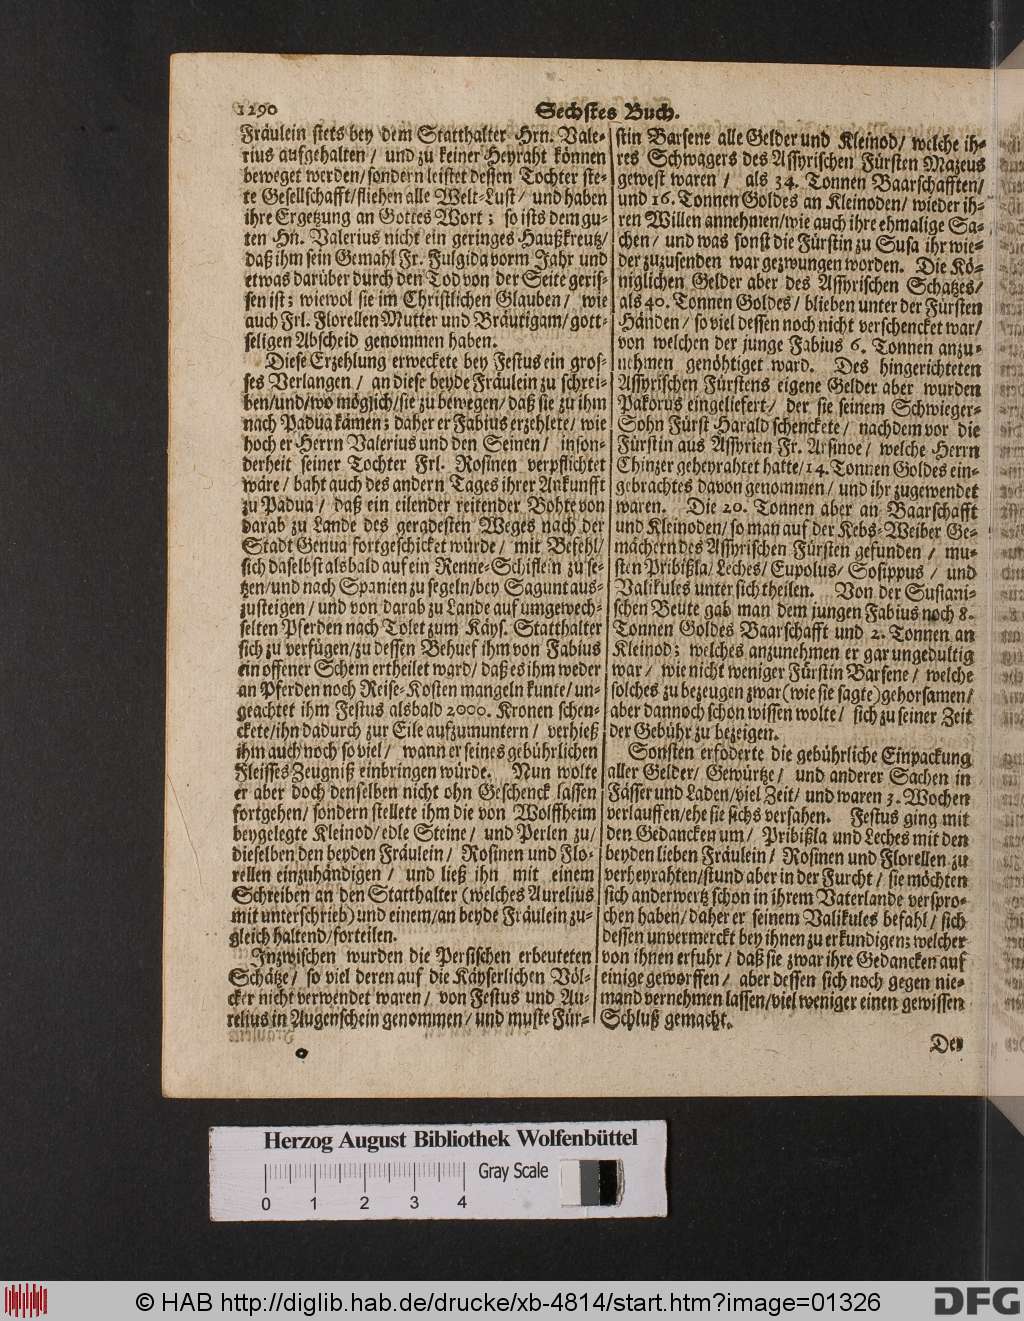 1290
Sechstes Buch.
Fräulein stets bey dem Statthalter Hrn. Vale-
rius aufgehalten / und zu keiner Heyraht können
beweget werden / sondern leistet dessen Tochter ste-
te Gesellschafft / fliehen alle Welt-Lust / und haben
ihre Ergetzung an Gottes Wort ; so ists dem gu-
ten Hn. Valerius nicht ein geringes Haußkreutz /
daß ihm sein Gemahl Fr. Fulgida vorm Jahr und
etwas darüber durch den Tod von der Seite geris-
sen ist ; wiewol sie im Christlichen Glauben / wie
auch Frl. Florellen Mutter und Bräutigam / gott-
seligen Abscheid genommen haben.
Diese Erzehlung erweckete bey Festus ein gros-
ses Verlangen / an diese beyde Fräulein zu schrei-
ben / und / wo möglich / sie zu bewegen / daß sie zu ihm
nach Padua kämen ; daher er Fabius erzehlete / wie
hoch er Herrn Valerius und den Seinen / inson-
derheit seiner Tochter Frl. Rosinen verpflichtet
wäre / baht auch des andern Tages ihrer Ankunfft
zu Padua / daß ein eilender reitender Bohte von
darab zu Lande des geradesten Weges nach der
Stadt Genua fortgeschicket würde / mit Befehl /
sich daselbst alsbald auf ein Renne-Schiflein zu se-
tzen / und nach Spanien zu segeln / bey Sagunt aus-
zusteigen / und von darab zu Lande auf umgewech-
selten Pferden nach Tolet zum Käys. Statthalter
sich zu verfügen / zu dessen Behuef ihm von Fabius
ein offener Schein ertheilet ward / daß es ihm weder
an Pferden noch Reise-Kosten mangeln kunte / un-
geachtet ihm Festus alsbald 2000. Kronen schen-
ckete / ihn dadurch zur Eile aufzumuntern / verhieß
ihm auch noch so viel / wann er seines gebührlichen
Fleisses Zeugniß einbringen würde. Nun wolte
er aber doch denselben nicht ohn Geschenck lassen
fortgehen / sondern stellete ihm die von Wolffheim
beygelegte Kleinod / edle Steine / und Perlen zu /
dieselben den beyden Fräulein / Rosinen und Flo-
rellen einzuhändigen / und ließ ihn mit einem
Schreiben an den Statthalter (welches Aurelius
mit unterschrieb) und einem / an beyde Fräulein zu-
gleich haltend / forteilen.
Inzwischen wurden die Persischen erbeuteten
Schätze / so viel deren auf die Käyserlichen Völ-
cker nicht verwendet waren / von Festus und Au-
relius in Augenschein genommen / und muste Für-
stin Barsene alle Gelder und Kleinod / welche ih-
res Schwagers des Assyrischen Fürsten Mazeus
gewest waren / als 34. Tonnen Baarschafften /
und 16. Tonnen Goldes an Kleinoden / wieder ih-
ren Willen annehmen / wie auch ihre ehmalige Sa-
chen / und was sonst die Fürstin zu Susa ihr wie-
der zuzusenden war gezwungen worden. Die Kö-
niglichen Gelder aber des Assyrischen Schatzes /
als 40. Tonnen Goldes / blieben unter der Fürsten
Händen / so viel dessen noch nicht verschencket war /
von welchen der junge Fabius 6. Tonnen anzu-
nehmen genöhtiget ward. Des hingerichteten
Assyrischen Fürstens eigene Gelder aber wurden
Pakorus eingeliefert / der sie seinem Schwieger-
Sohn Fürst Harald schenckete / nachdem vor die
Fürstin aus Assyrien Fr. Arsinoe / welche Herrn
Chinzer geheyrahtet hatte / 14. Tonnen Goldes ein-
gebrachtes davon genommen / und ihr zugewendet
waren. Die 20. Tonnen aber an Baarschafft
und Kleinoden / so man auf der Kebs-Weiber Ge-
mächern des Assyrischen Fürsten gefunden / mu-
sten Pribißla / Leches / Eupolus / Sosippus / und
Valikules unter sich theilen. Von der Susiani-
schen Beute gab man dem jungen Fabius noch 8.
Tonnen Goldes Baarschafft und 2. Tonnen an
Kleinod ; welches anzunehmen er gar ungedultig
war / wie nicht weniger Fürstin Barsene / welche
solches zu bezeugen zwar (wie sie sagte) gehorsamen /
aber dannoch schon wissen wolte / sich zu seiner Zeit
der Gebühr zu bezeigen.
Sonsten erfoderte die gebührliche Einpackung
aller Gelder / Gewürtze / und anderer Sachen in
Fässer und Laden / viel Zeit / und waren 3. Wochen
verlauffen / ehe sie sichs versahen. Festus ging mit
den Gedancken um / Pribißla und Leches mit den
beyden lieben Fräulein / Rosinen und Florellen zu
verheyrahten / stund aber in der Furcht / sie möchten
sich anderwertz schon in ihrem Vaterlande verspro-
chen haben / daher er seinem Valikules befahl / sich
dessen unvermerckt bey ihnen zu erkundigen ; welcher
von ihnen erfuhr / daß sie zwar ihre Gedancken auf
einige geworffen / aber dessen sich noch gegen nie-
mand vernehmen lassen / viel weniger einen gewissen
Schluß gemacht.
Der
Herzog August Bibliothek Wolfenbüttel
Gray Scale
0 1 2 3 4
© HAB http://diglib.hab.de/drucke/xb-4814/start.htm?image=01326
DFG